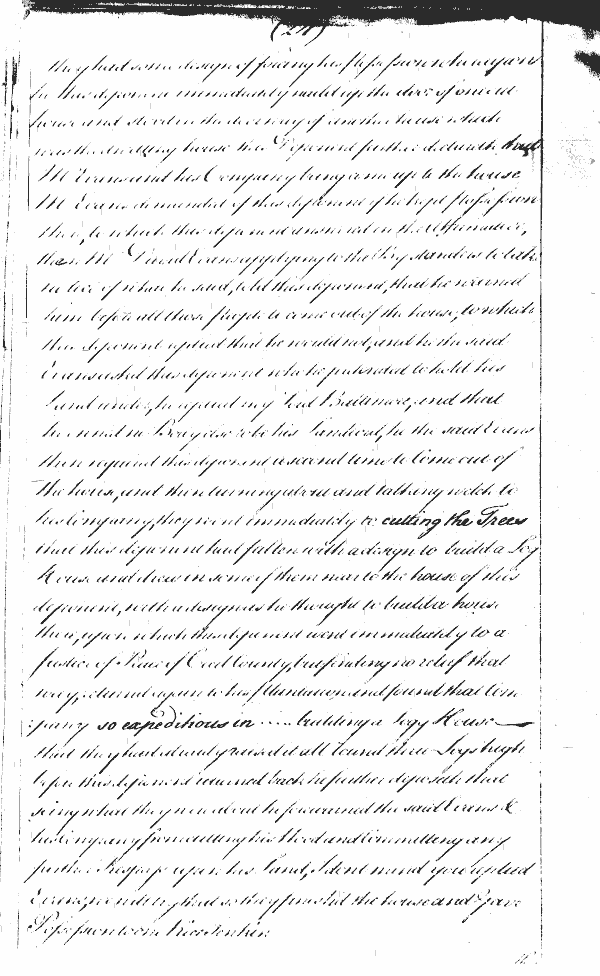 (211)
they had some design of forcing his Possession whereupon
he this deponent immediately nailed up the door of one
house and stood in the doorway of another house which
was the dwelling house this Deponent further declareth that
Mr Evans and his Company being come up to the house
Mr Evans demanded of this deponent if he kept possession
there, to which this deponent answered in the Affirmative,
then Mr David Evans applying to the By standers to take
notice of what he said, told this deponent, that he warned
him before all those People to come out of the house, to which
this deponent replied that he would not, and he the said
Evans asked this deponent who he pretended to hold his
Land under, he replied my Lord Baltimore, and that
he the said Evans
then required this deponent a second time to Come out of
the house, and then turning about and talking welch to
his Company, they went immediately to cutting the Trees
that this deponent had fallen with a design to build a Log
House and drew in some of them near to the house of this
deponent, with a design as he thought to build a house
there, upon which this deponent went immediately to a
Justice of Peace of Cecil County, but finding no relief that
way, returned again to his Plantation and found that Com
pany so expeditious in ..... building a Logg House
that they had already raised it all round three Logs high
before this deponent returned back he further deposeth that
seing what they were about he forewarned the said Evans &
his Company from cutting his Wood and Committing any
further Trespass upon his Land, I dont mind you replied
Evans, so they finished the house and Gave
Possession to one Rice Jenkin